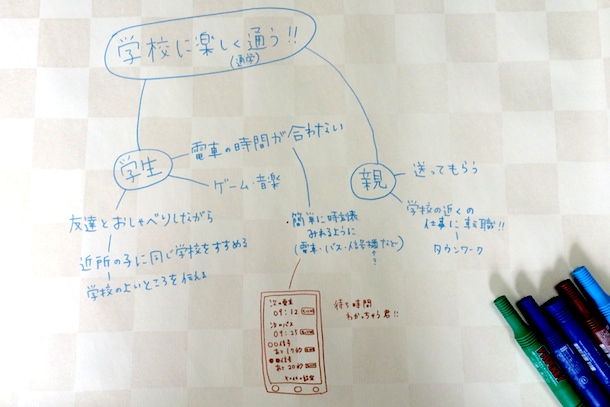 学校に楽しく通う!!
(通学)
学生
電車の時間が合わない
ゲーム・音楽
友達とおしゃべりしながら
近所の子に同じ学校をすすめる
学校のよいところを伝える
親
送ってもらう
学校の近くの
仕事に転職!!
タウンワーク
・簡単に時刻表
みれるように
(電車・バス・信号機など)
次の電車
09:12
次のバス
09:25
信号
あと17秒
信号
あと20秒
待ち時間
わかっちゃう君!!